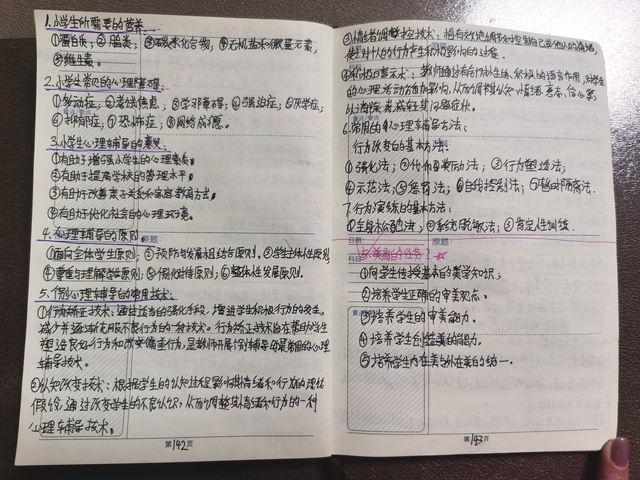 1.小学生所需要的营养:
①蛋白质;②脂类;③碳水化合物;④无机盐和微量元素;
⑤维生素。
2.小学生常见的心理障碍:
①多动症;②考试焦虑;③学习障碍;④强迫症;⑤厌学症;
⑥抑郁症;⑦恐怖症;⑧网络成瘾。
3.小学生心理辅导的意义:
①有助于增强小学生的心理素质。
②有助于提高学校的管理水平。
③有助于改善亲子关系和家庭教育方式。
④有助于优化社会的心理环境。
4.心理辅导的原则
原题:
①面向全体学生原则;②预防与发展相结合原则;③学生主体性原则
④尊重与理解学生原则;⑤个别化对待原则;⑥整体性发展原则。
5.个别心理辅导的常用技术:
①行为矫正技术:通过适当的强化手段,增进学生积极行为的发生,
减少并逐渐克服不良行为的一种技术。行为矫正技术旨在帮助学生
塑造良好行为和改变偏差行为,是教师开展个别辅导最常用的心理
辅导技术。
②认知改变技术:根据学生的认知过程影响其情绪和行为的理论
假设,通过改变学生的不良认识,从而调整其情绪和行为的一种
心理辅导技术。
第142页
③情绪调整技术:
使之对个人的行为产生积极影响的过程。
教师通过
6.常用的心理辅导方法:
行为改变的基本方法:
①强化法;②代币奖励法;③行为塑造法;
④示范法;⑤惩罚法;⑥自我控制法;⑦暂时隔离法.
7.行为演练的基本方法:
①全身松弛法;②系统脱敏法;③肯定性训练.
日期:
原题:
科目:
8.美育的任务?☆
①向学生传授基本的美学知识;
②培养学生正确的审美观点。
③培养学生的审美能力.
④培养学生创造美的能力。
⑤培养学生内在美与外在美的统一.
第143页